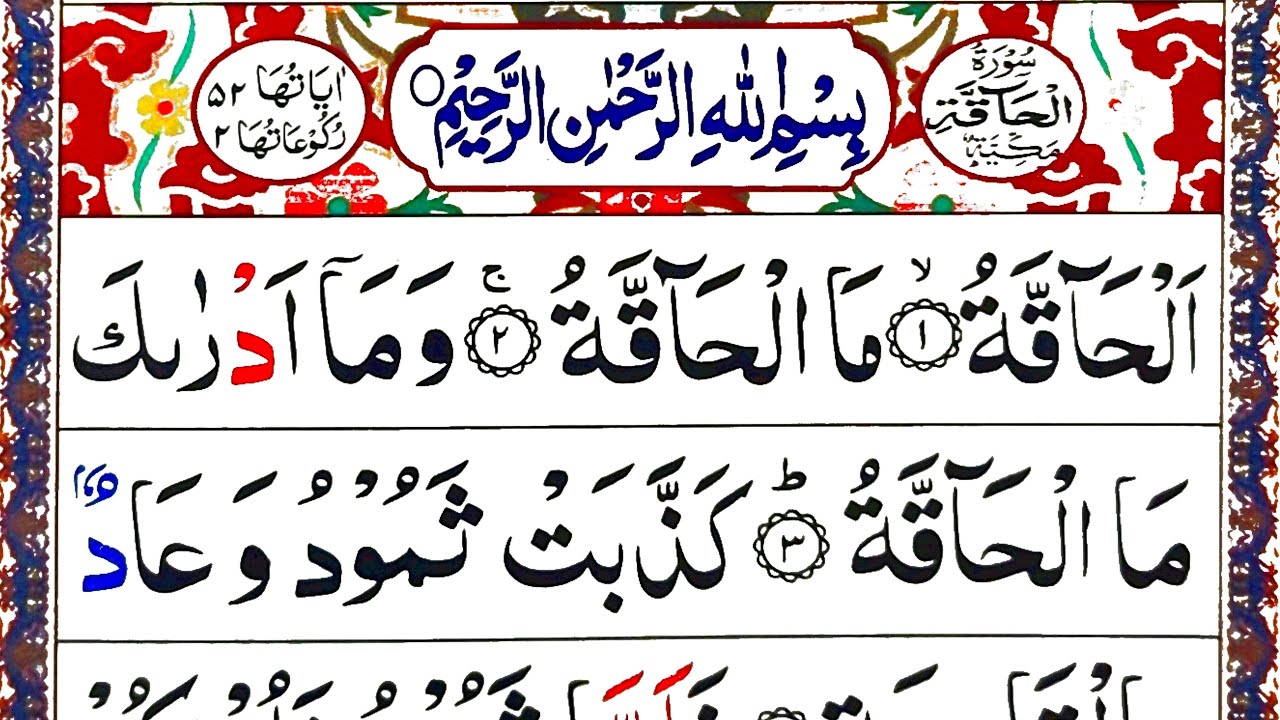 سُوْرَةُ
الْحَآقَّةِ
مَكِّيَّةٌ
بِسْمِ اللّٰهِ الرَّحْمٰنِ الرَّحِيْمِ ○
اٰيَاتُهَا ٥٢
رُكُوْعَاتُهَا ٢
اَلْحَآقَّةُ ۙ ١ مَا الْحَآقَّةُ ۚ ٢ وَمَاۤ اَدْرٰىكَ
مَا الْحَآقَّةُ ؕ ٣ كَذَّبَتْ ثَمُوْدُ وَ عَادٌۢ